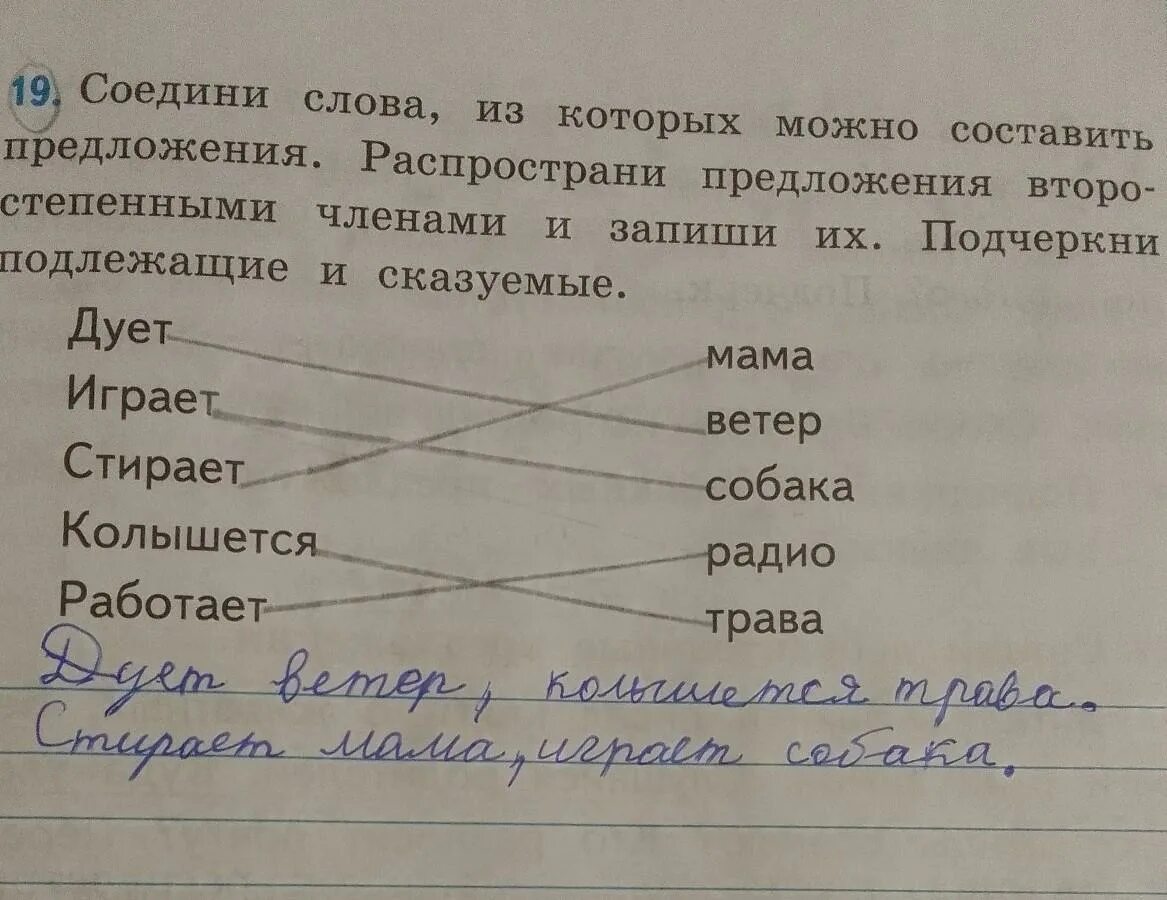 19. Соедини слова, из которых можно составить
предложения. Распространи предложения второ-
степенными членами и запиши их. Подчеркни
подлежащие и сказуемые.
Дует
мама
Играет
ветер
Стирает
собака
Колышется
радио
Работает
трава
Дует ветер, колышется трава.
Стирает мама, играет собака.